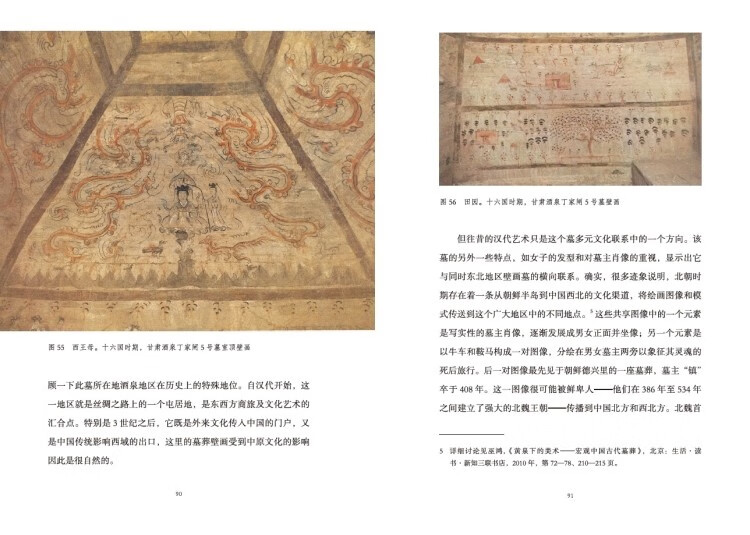 图 55　西王母。十六国时期，甘肃酒泉丁家闸 5 号墓室顶壁画
顾一下此墓所在地酒泉地区在历史上的特殊地位。自汉代开始，这
一地区就是丝绸之路上的一个屯居地，是东西方商旅及文化艺术的
汇合点。特别是 3 世纪之后，它既是外来文化传入中国的门户，又
是中国传统影响西域的出口，这里的墓葬壁画受到中原文化的影响
因此是很自然的。
90
图 56　田园。十六国时期，甘肃酒泉丁家闸 5 号墓壁画
但往昔的汉代艺术只是这个墓多元文化联系中的一个方向。该
墓的另外一些特点，如女子的发型和对墓主肖像的重视，显示出它
与同时东北地区壁画墓的横向联系。确实，很多迹象说明，北朝时
期存在着一条从朝鲜半岛到中国西北的文化渠道，将绘画图像和模
式传送到这个广大地区中的不同地点。5 这些共享图像中的一个元素
是写实性的墓主肖像，逐渐发展成男女正面并坐像；另一个元素是
以牛车和鞍马构成一对图像，分绘在男女墓主两旁以象征其灵魂的
死后旅行。后一对图像最先见于朝鲜德兴里的一座墓葬，墓主“镇”
卒于 408 年。这一图像很可能被鲜卑人——他们在 386 年至 534 年
之间建立了强大的北魏王朝——传播到中国北方和西北方。北魏首
5　详细讨论见巫鸿，《黄泉下的美术——宏观中国古代墓葬》，北京：生活·读
书·新知三联书店，2010 年，第 72—78、210—215 页。
91